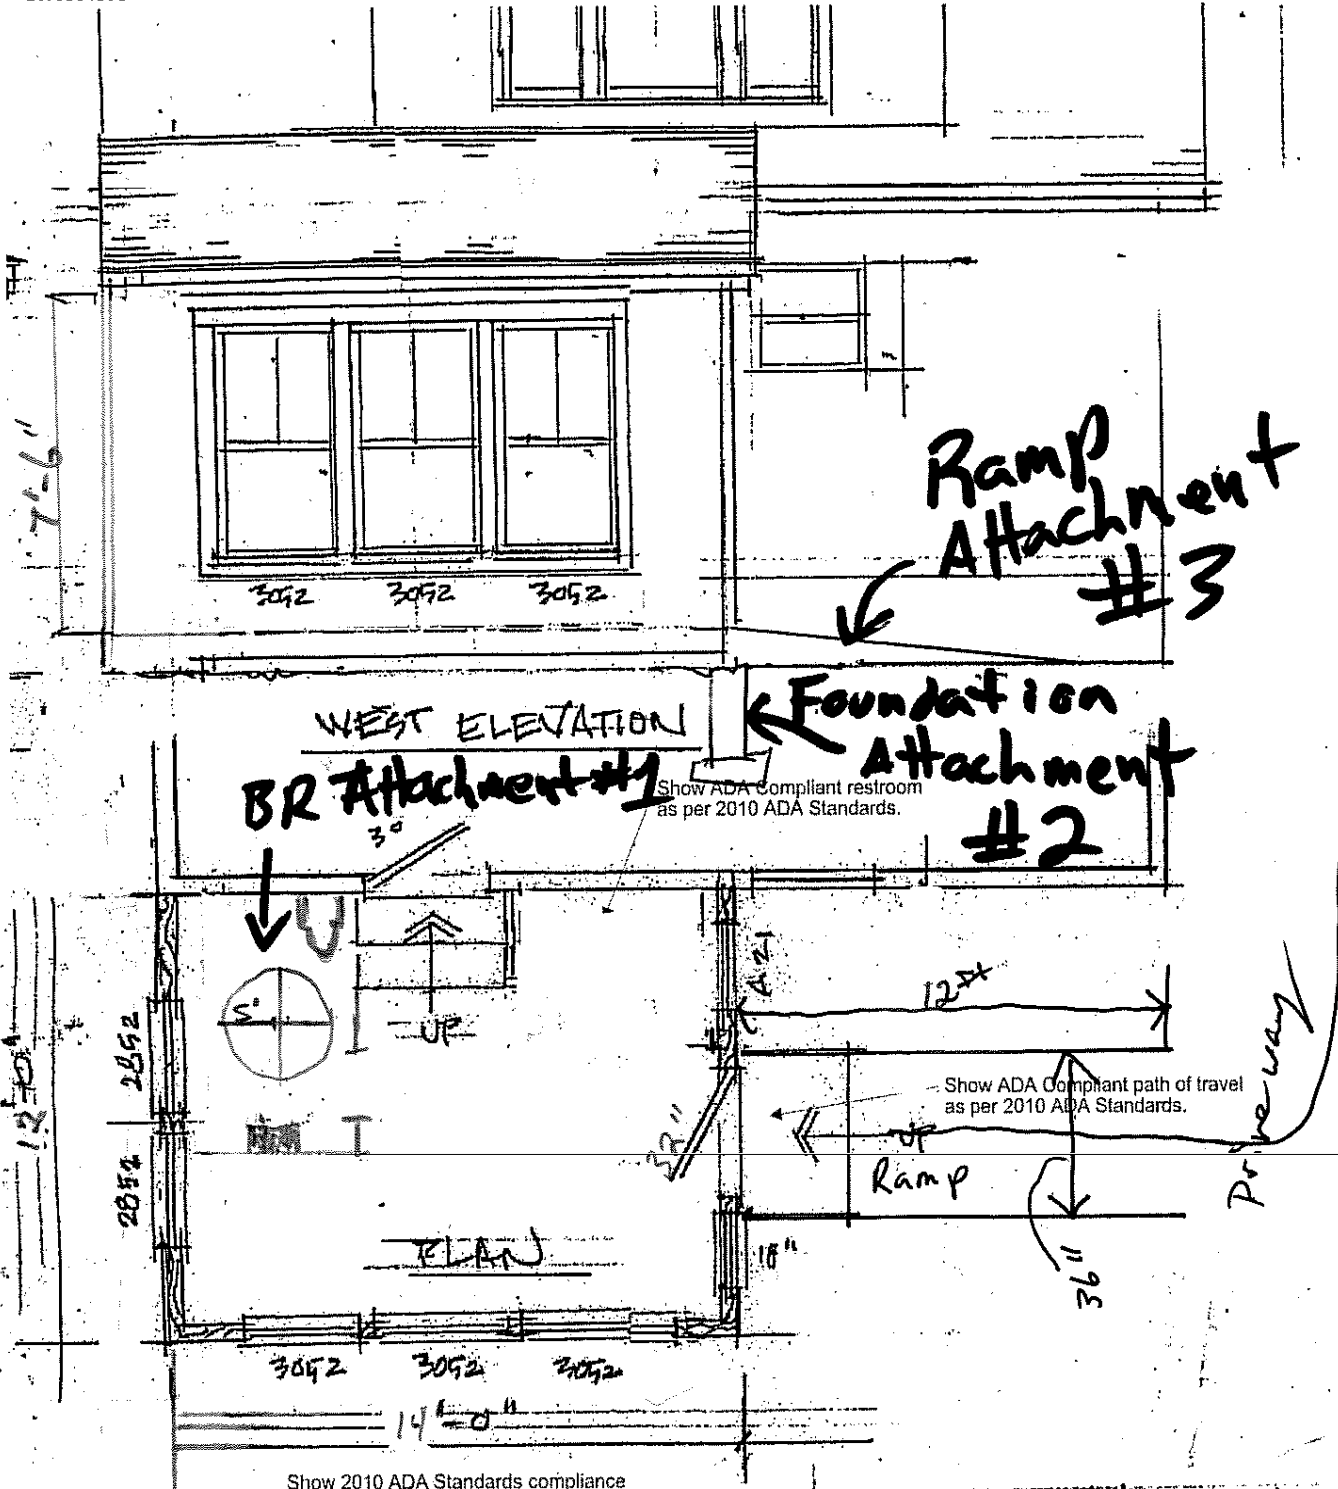 7'-6"
Ramp
Attachment
#3
3052 3052 3052
WEST ELEVATION
Foundation
Attachment
#2
BR Attachment #1
Show ADA Compliant restroom
as per 2010 ADA Standards.
3°
5'
UP
A21
12 ft
2852
2852
12'-0"
32"
Show ADA Compliant path of travel
as per 2010 ADA Standards.
UP
Ramp
Driveway
36"
18"
PLAN
3052 3052 3052
14'-0"
Show 2010 ADA Standards compliance